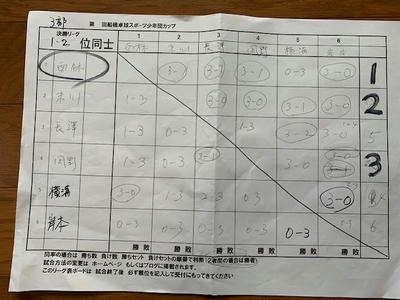 3部 第 回船橋卓球スポーツ少年団カップ
決勝リーグ
1・2 位同士
1 2 3 4 5 6
長澤 岡野 横濱
1 3-1 3-1 3-1 0-3 3-0 1
2 1-3 3-0 3-0 3-1 3-0 2
3 長澤 1-3 0-3 1-3 3-2 5
4 岡野 1-3 0-3 3-1 3-0 3
5 横濱 3-0 1-3 2-3 0-3 3-0
6 岸本 0-3 0-3 0-3 0-3 6
勝 敗 勝 敗 勝 敗 勝 敗 勝 敗 勝 敗
同率の場合は 勝ち数 負け数 勝ちセット 負けセットの順番で判断(2者間の場合は勝者)
試合方法の変更は ホームページ もしくはブログに掲載されます。
このリーグ表ボードは 試合終了後 必ず順位を記入して受付にもってきてください